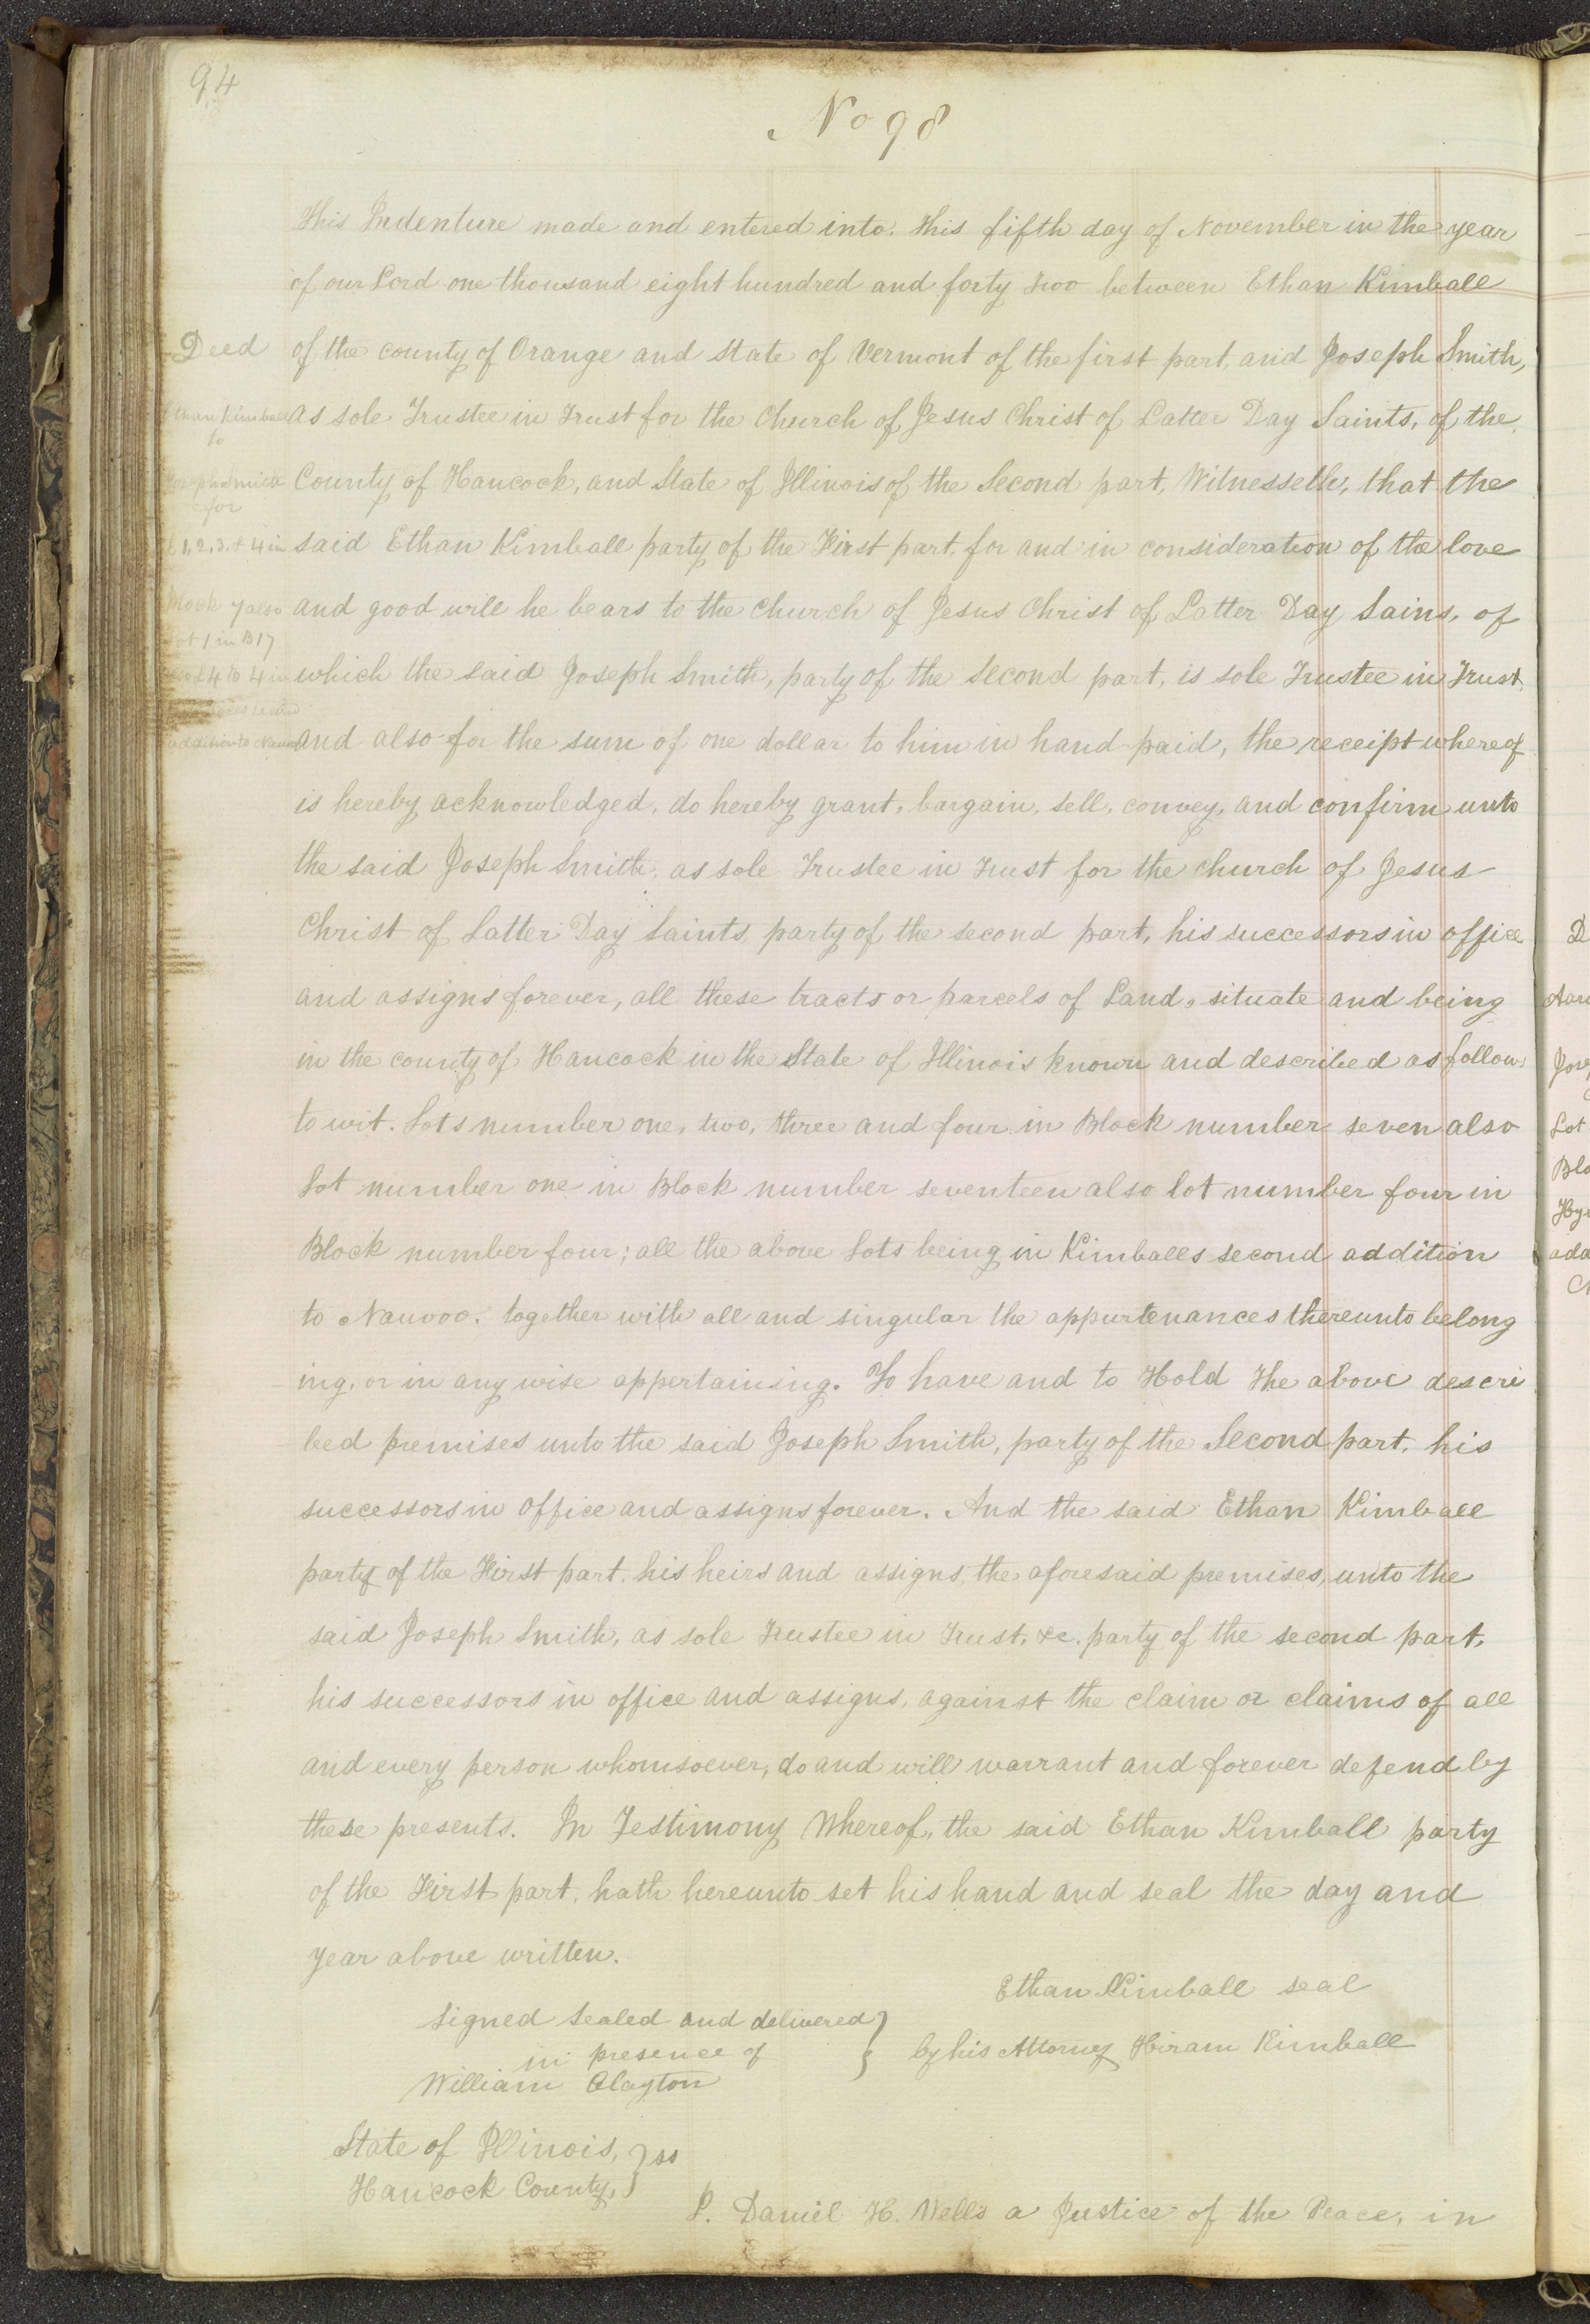 94
No 98
This Indenture made and entered into. this fifth day of November in the year
of our Lord one thousand eight hundred and forty two between Ethan Kimball
Deed
of the county of Orange and State of Vermont of the first part, and Joseph Smith,
Ethan Kimball
as sole Trustee in Trust for the Church of Jesus Christ of Latter Day Saints, of the
to
Joseph Smith
County of Hancock, and State of Illinois of the Second part, Witnesseth, that the
for
1, 2, 3, & 4 in
said Ethan Kimball party of the First part, for and in consideration of the love
Block 7 also
and good will he bears to the Church of Jesus Christ of Latter Day Sains, of
Lot 1 in B 17
L 4 B 4 in
which the said Joseph Smith, party of the Second part, is sole Trustee in Trust,
addition to Nauvoo
and also for the sum of one dollar to him in hand paid, the receipt whereof
is hereby acknowledged, do hereby grant, bargain, sell, convey, and confirm unto
the said Joseph Smith, as sole Trustee in Trust for the church of Jesus
Christ of Latter Day Saints, party of the second part, his successors in office
and assigns forever, all these tracts or parcels of Land, situate and being
in the county of Hancock in the State of Illinois known and described as follows
to wit. Lots number one, two, three and four in Block number seven also
Lot number one in Block number seventeen also lot number four in
Block number four; all the above Lots being in Kimballs second addition
to Nauvoo. together with all and singular the appurtenances thereunto belong
ing, or in any wise appertaining. To have and to Hold The above descri
bed premises unto the said Joseph Smith, party of the Second part, his
successors in office and assigns forever. And the said Ethan Kimball
party of the First part, his heirs and assigns, the aforesaid premises, unto the
said Joseph Smith, as sole Trustee in Trust, &c. party of the second part,
his successors in office and assigns, against the claim or claims of all
and every person whomsoever, do and will warrant and forever defend by
these presents. In Testimony Whereof, the said Ethan Kimball party
of the First part, hath hereunto set his hand and seal the day and
year above written.
Ethan Kimball seal
by his Attorney Hiram Kimball
Signed Sealed and delivered }
in presence of }
William Clayton
State of Illinois, } ss
Hancock County, }
I. Daniel H. Wells a Justice of the Peace, in